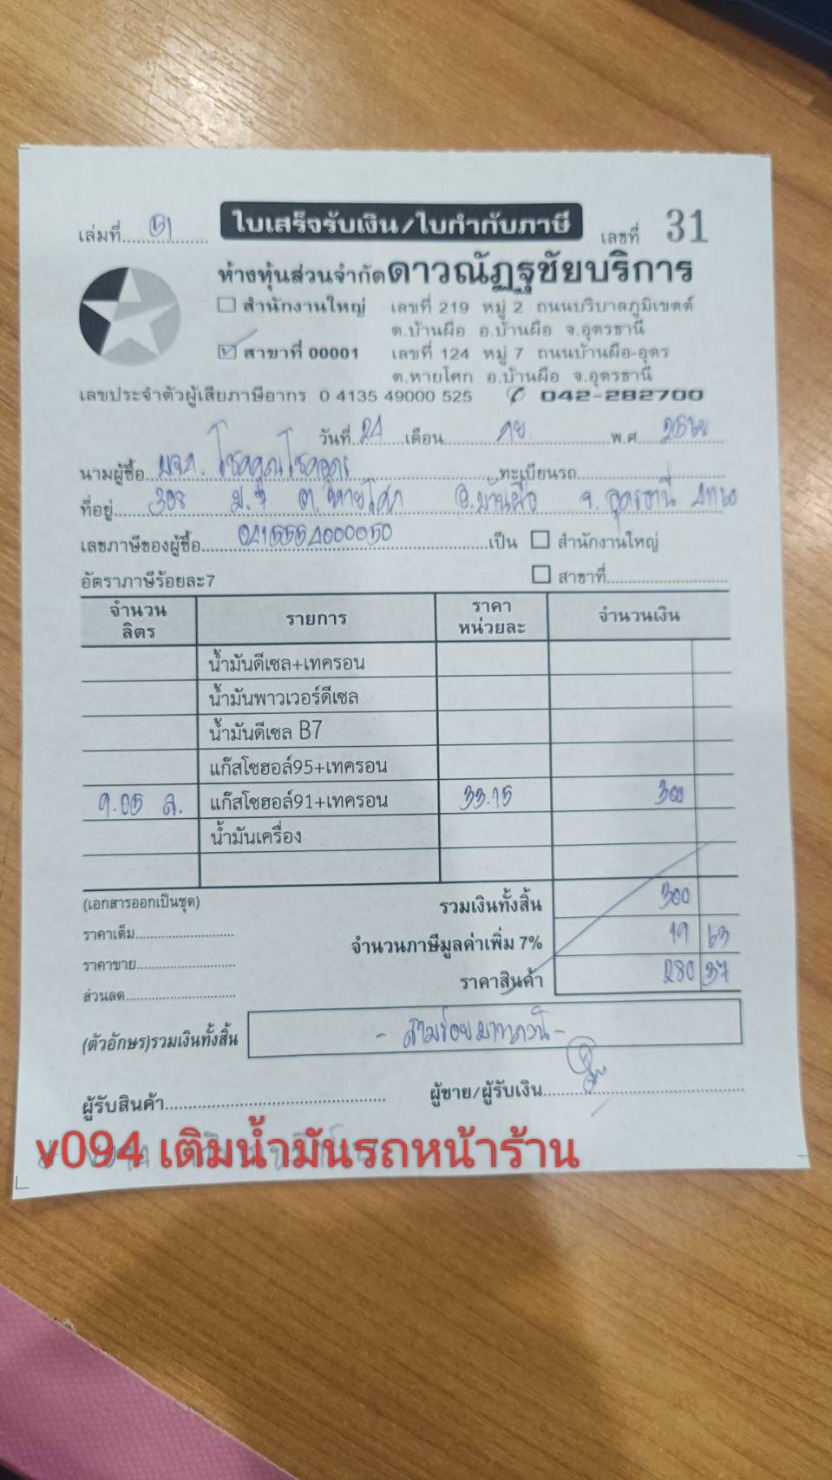 เล่มที่
ใบเสร็จรับเงิน/ใบกำกับภาษี
เลขที่ 31
ห้างหุ้นส่วนจำกัดดาวณัฏฐชัยบริการ
สำนักงานใหญ่ เลขที่ 219 หมู่ 2 ถนนบริบาลภูมิเขตต์
ต.บ้านผือ อ.บ้านผือ จ.อุดรธานี
สาขาที่ 00001 เลขที่ 124 หมู่ 7 ถนนบ้านผือ-อุดร
ต.หายโศก อ.บ้านผือ จ.อุดรธานี
เลขประจำตัวผู้เสียภาษีอากร 0 4135 49000 525 042-282700
วันที่ 24 เดือน กย พ.ศ.
นามผู้ซื้อ หจก. โชคคูณโชคอุดร ทะเบียนรถ
ที่อยู่ 308 ม.7 ต.หายโศก อ.บ้านผือ จ.อุดรธานี 41160
เลขภาษีของผู้ซื้อ เป็น สำนักงานใหญ่
อัตราภาษีร้อยละ7 สาขาที่
จำนวน ลิตร รายการ ราคา หน่วยละ จำนวนเงิน
น้ำมันดีเซล+เทครอน
น้ำมันพาวเวอร์ดีเซล
น้ำมันดีเซล B7
แก๊สโซฮอล์95+เทครอน
9.05 ล. แก๊สโซฮอล์91+เทครอน 33.15 300
น้ำมันเครื่อง
(เอกสารออกเป็นชุด) รวมเงินทั้งสิ้น 300
ราคาเต็ม
จำนวนภาษีมูลค่าเพิ่ม 7% 19 63
ราคาขาย
ราคาสินค้า 280 37
ส่วนลด
(ตัวอักษร)รวมเงินทั้งสิ้น - สามร้อยบาทถ้วน -
ผู้รับสินค้า ผู้ขาย/ผู้รับเงิน
v094 เติมน้ำมันรถหน้าร้าน